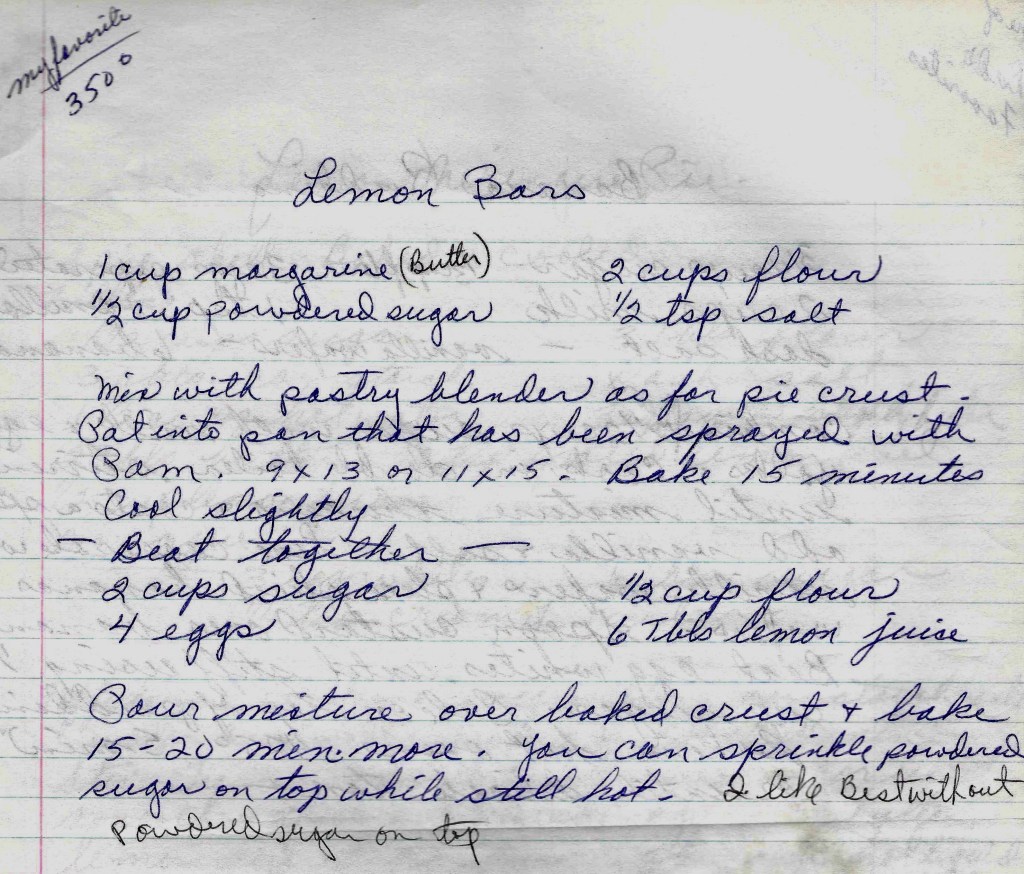 my favorite
350°
Lemon Bars
1 cup margarine (Butter) 2 cups flour
1/2 cup powdered sugar 1/2 tsp salt
Mix with pastry blender as for pie crust.
Pat into pan that has been sprayed with
Pam. 9 x 13 or 11 x 15. Bake 15 minutes
Cool slightly
— Beat together —
2 cups sugar 1/2 cup flour
4 eggs 6 Tbls lemon juice
Pour mixture over baked crust + bake
15-20 min. more. You can sprinkle powdered
sugar on top while still hot. I like Best without
powdered sugar on top